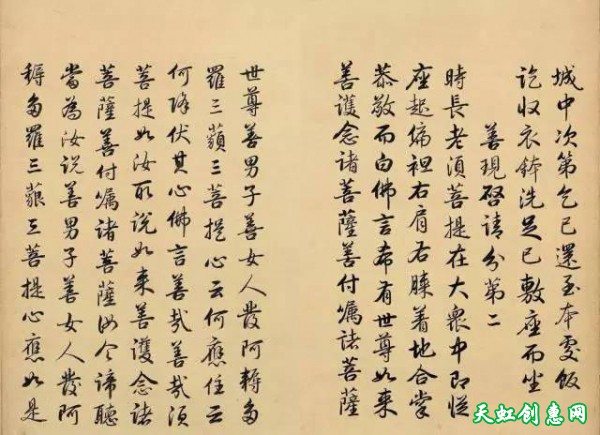 城中次第乞已還至本處飯
訖收衣鉢洗足已敷座而坐
善現啓請分第二
時長老須菩提在大衆中即從
座起偏袒右肩右膝着地合掌
恭敬而白佛言希有世尊如来
善護念諸菩薩善付嘱諸菩薩
世尊善男子善女人發阿耨多
羅三藐三菩提心云何應住云
何降伏其心佛言善哉善哉須
菩提如汝所說如来善護念諸
菩薩善付嘱諸菩薩汝今諦聽
當為汝說善男子善女人發阿
耨多羅三藐三菩提心應如是
天虹创惠网